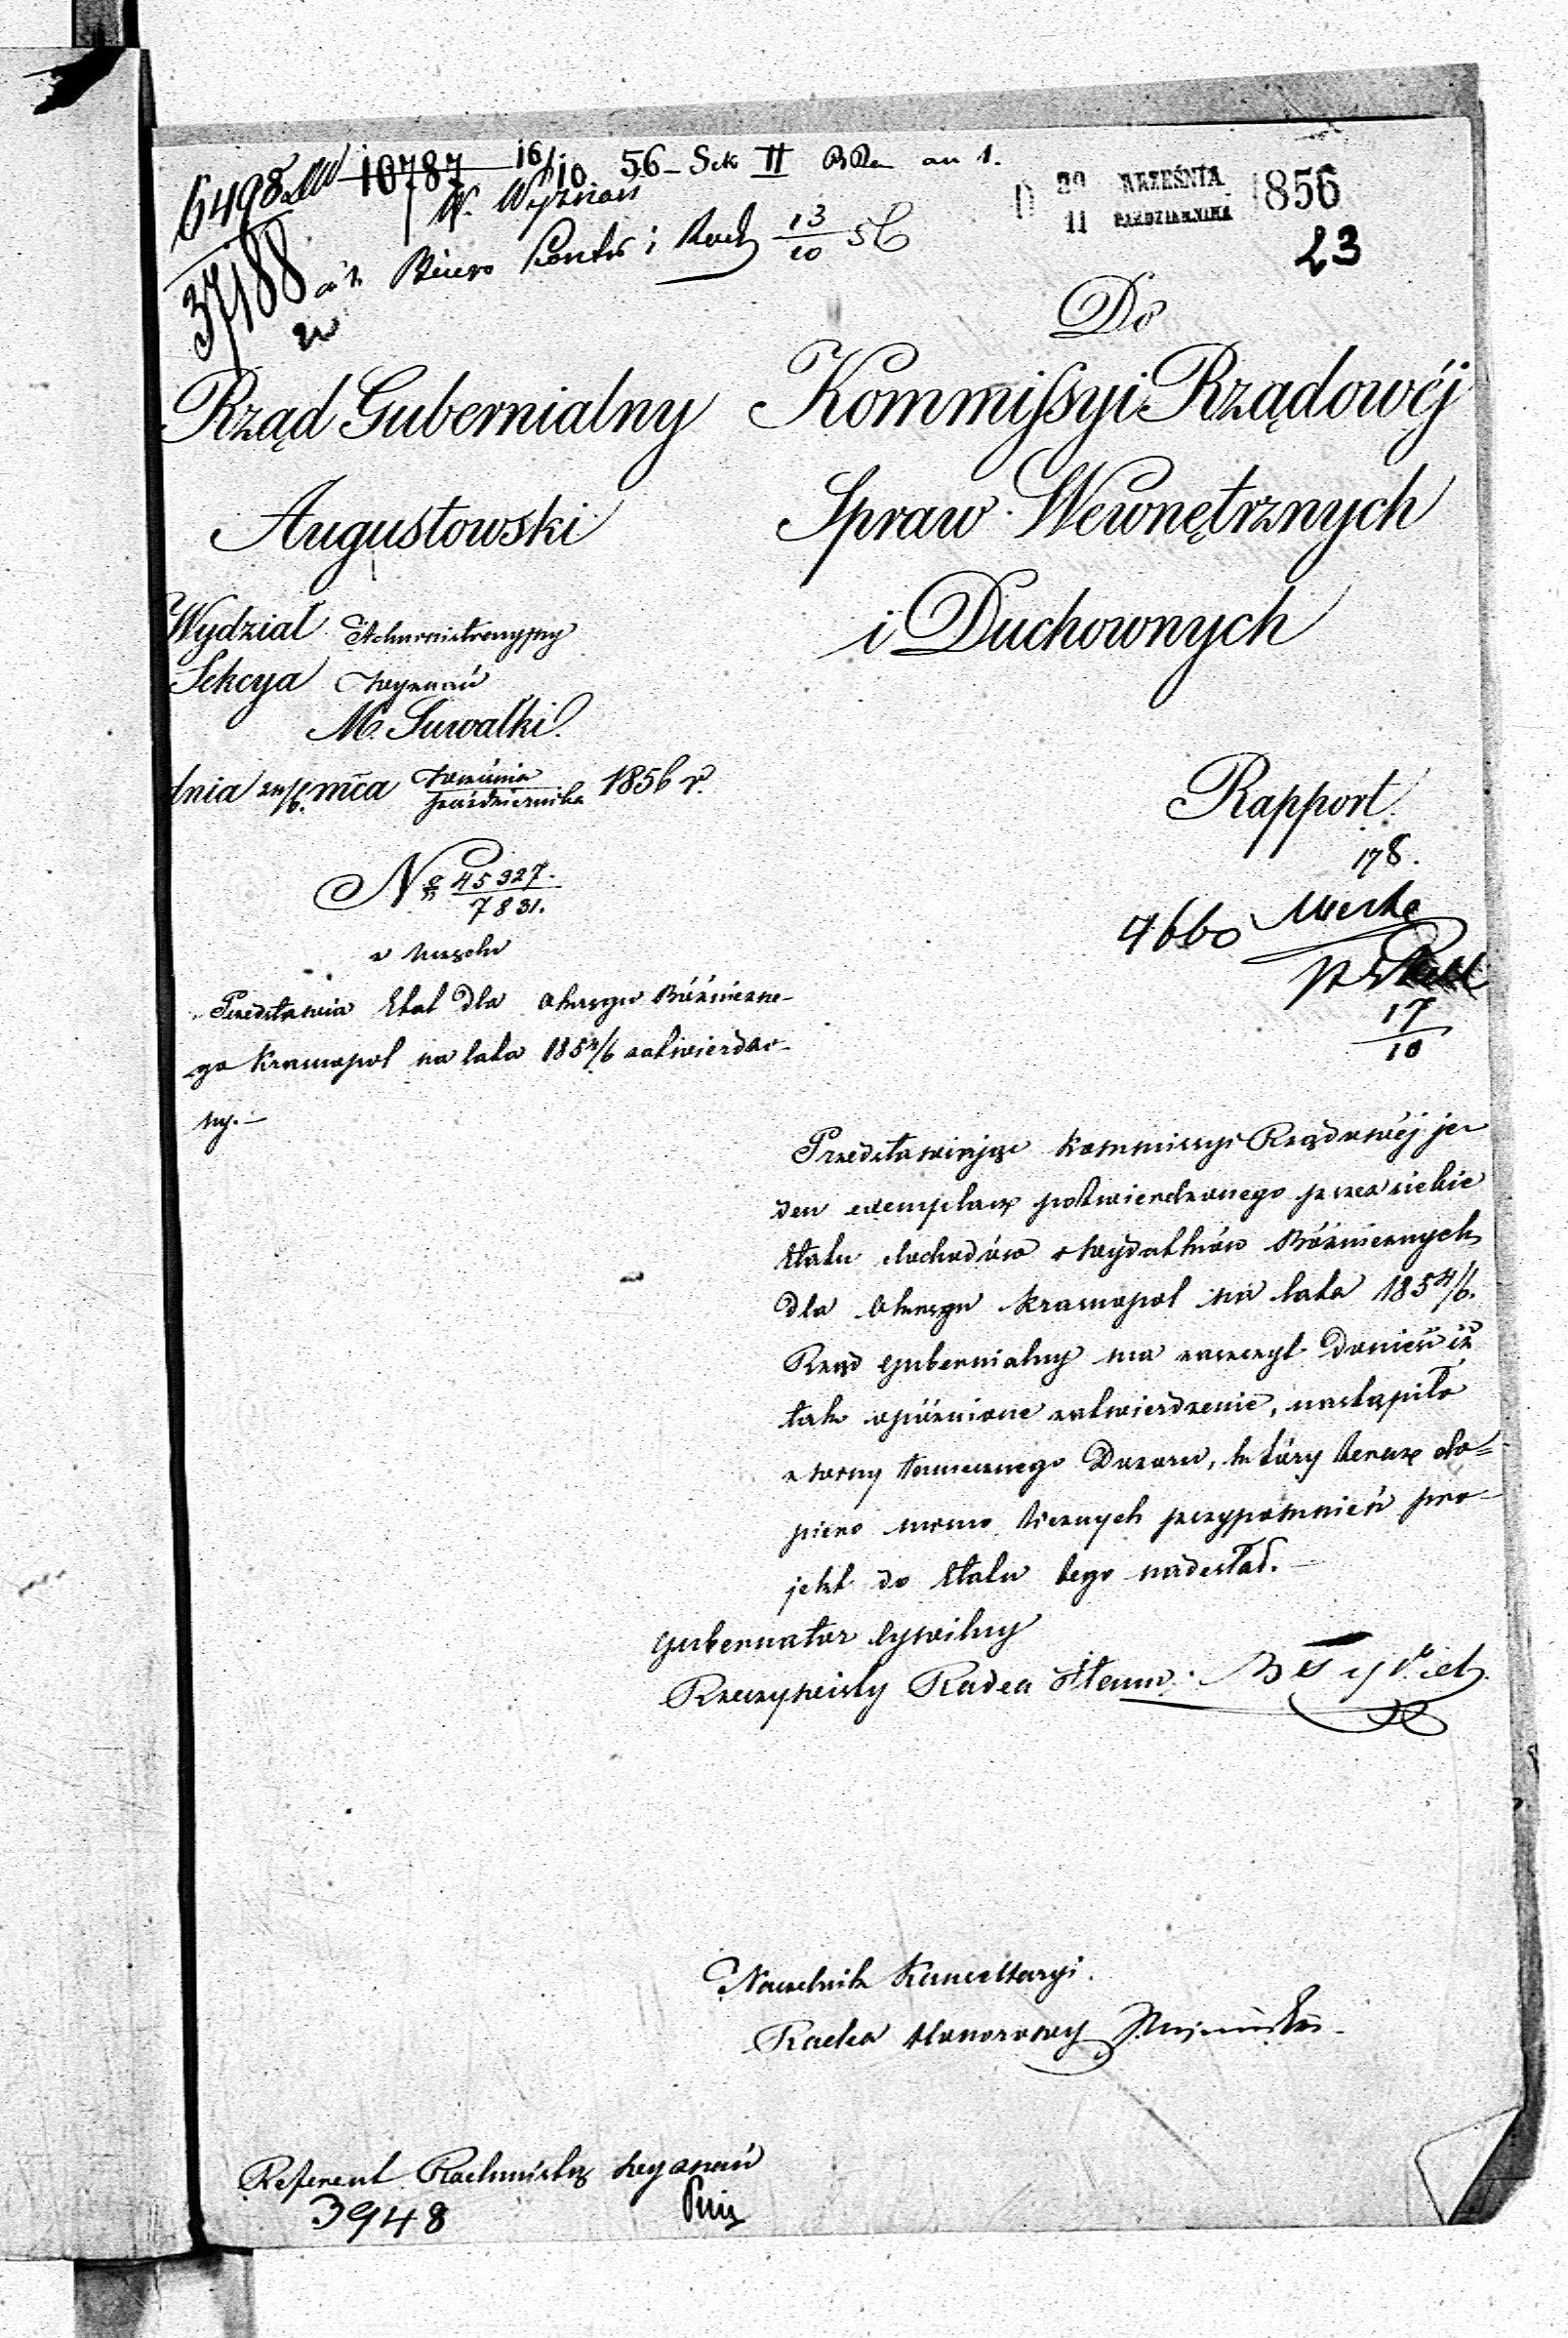 6498 10787 16/10 56 – Sek II an 1.
W. Wyznań
Biuro Kontr i Rach 13/10 56
37188
D 29 WRZEŚNIA 1856
11 PAŹDZIERNIKA
23
Do
Kommissyi Rządowéj
Spraw Wewnętrznych
i Duchownych
Rząd Gubernialny
Augustowski
Wydział Administracyjny
Sekcya Wyznań
M. Suwałki.
dnia mca Września/Października 1856 r.
No 45927./7831.
Rapport.
178.
4660
17/10
Przedstawia Etat dla Okręgu Bóżniczne-
go Krasnopol na lata 1854/6 zatwierdzo-
ny.–
Przedstawiając Kommissyi Rządowéj je-
den exemplarz potwierdzonego przez siebie
Etatu dochodów i wydatków Bóżnicznych
dla Okręgu Krasnopol na lata 1854/6.
Rząd Gubernialny ma zaszczyt donieść iż
tak opóźnione zatwierdzenie, nastąpiło
z winy tamecznego Dozoru, który teraz do=
piero mimo licznych przypomnień pro-
jekt do Etatu tego nadesłał.–
Gubernator Cywilny
Rzeczywisty Radca Stanu
Naczelnik Kancellaryi.
Radca Honorowy
Referent Rachmistrz Wyznań
3948